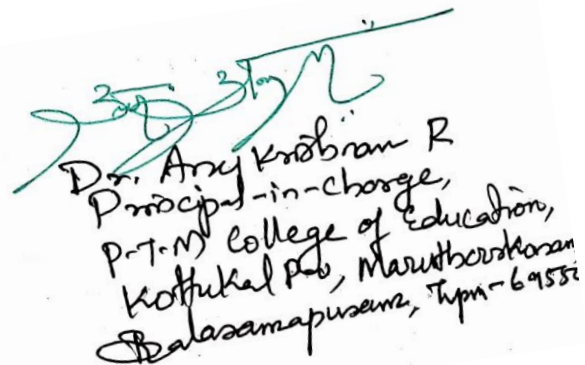 Dr. Any Krishnan R
Principal-in-charge,
P.T.M College of Education,
Kottukal P.O, Maruthoorkonam
Balaramapuram, Tvpm - 69552